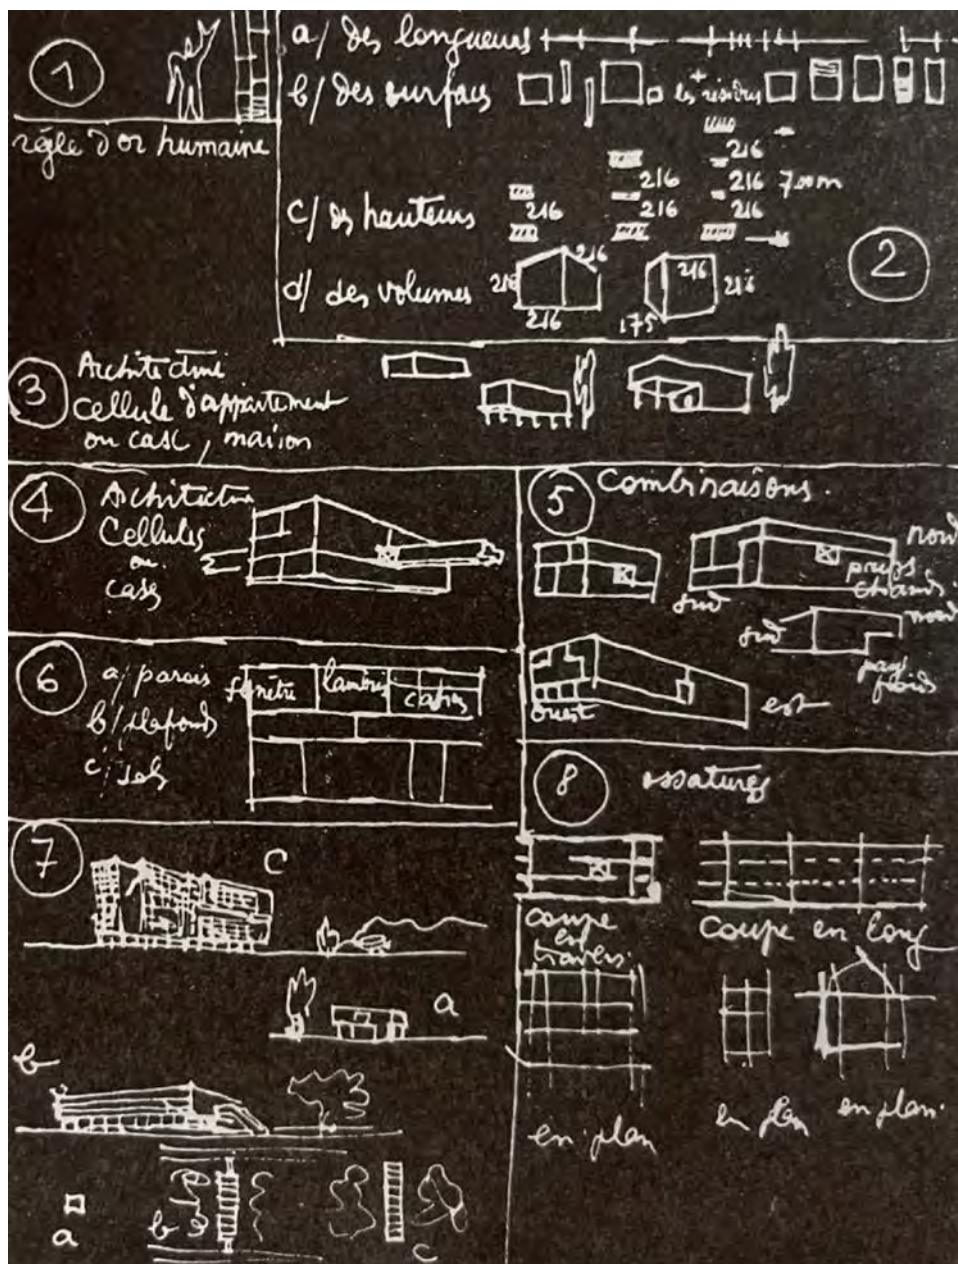 1
règle d'or humaine
a/ des longueurs
b/ des surfaces + les résidus
216
216 216 7.00m
c/ des hauteurs 216 216 216
2
d/ des volumes 216 216 216 175 216 216
3
Architecture
cellule d'appartement
ou case, maison
4
Architecture
Cellules
ou
cases
5
Combinaisons.
nord
pays
chauds.
sud
sud nord
pays
froids
ouest est
6
a/ parois
b/ plafonds
c/ sols
fenêtre lambris casiers
7
c
a
b
a b c
8
ossatures
coupe
en
travers.
coupe en long
en plan en plan en plan.